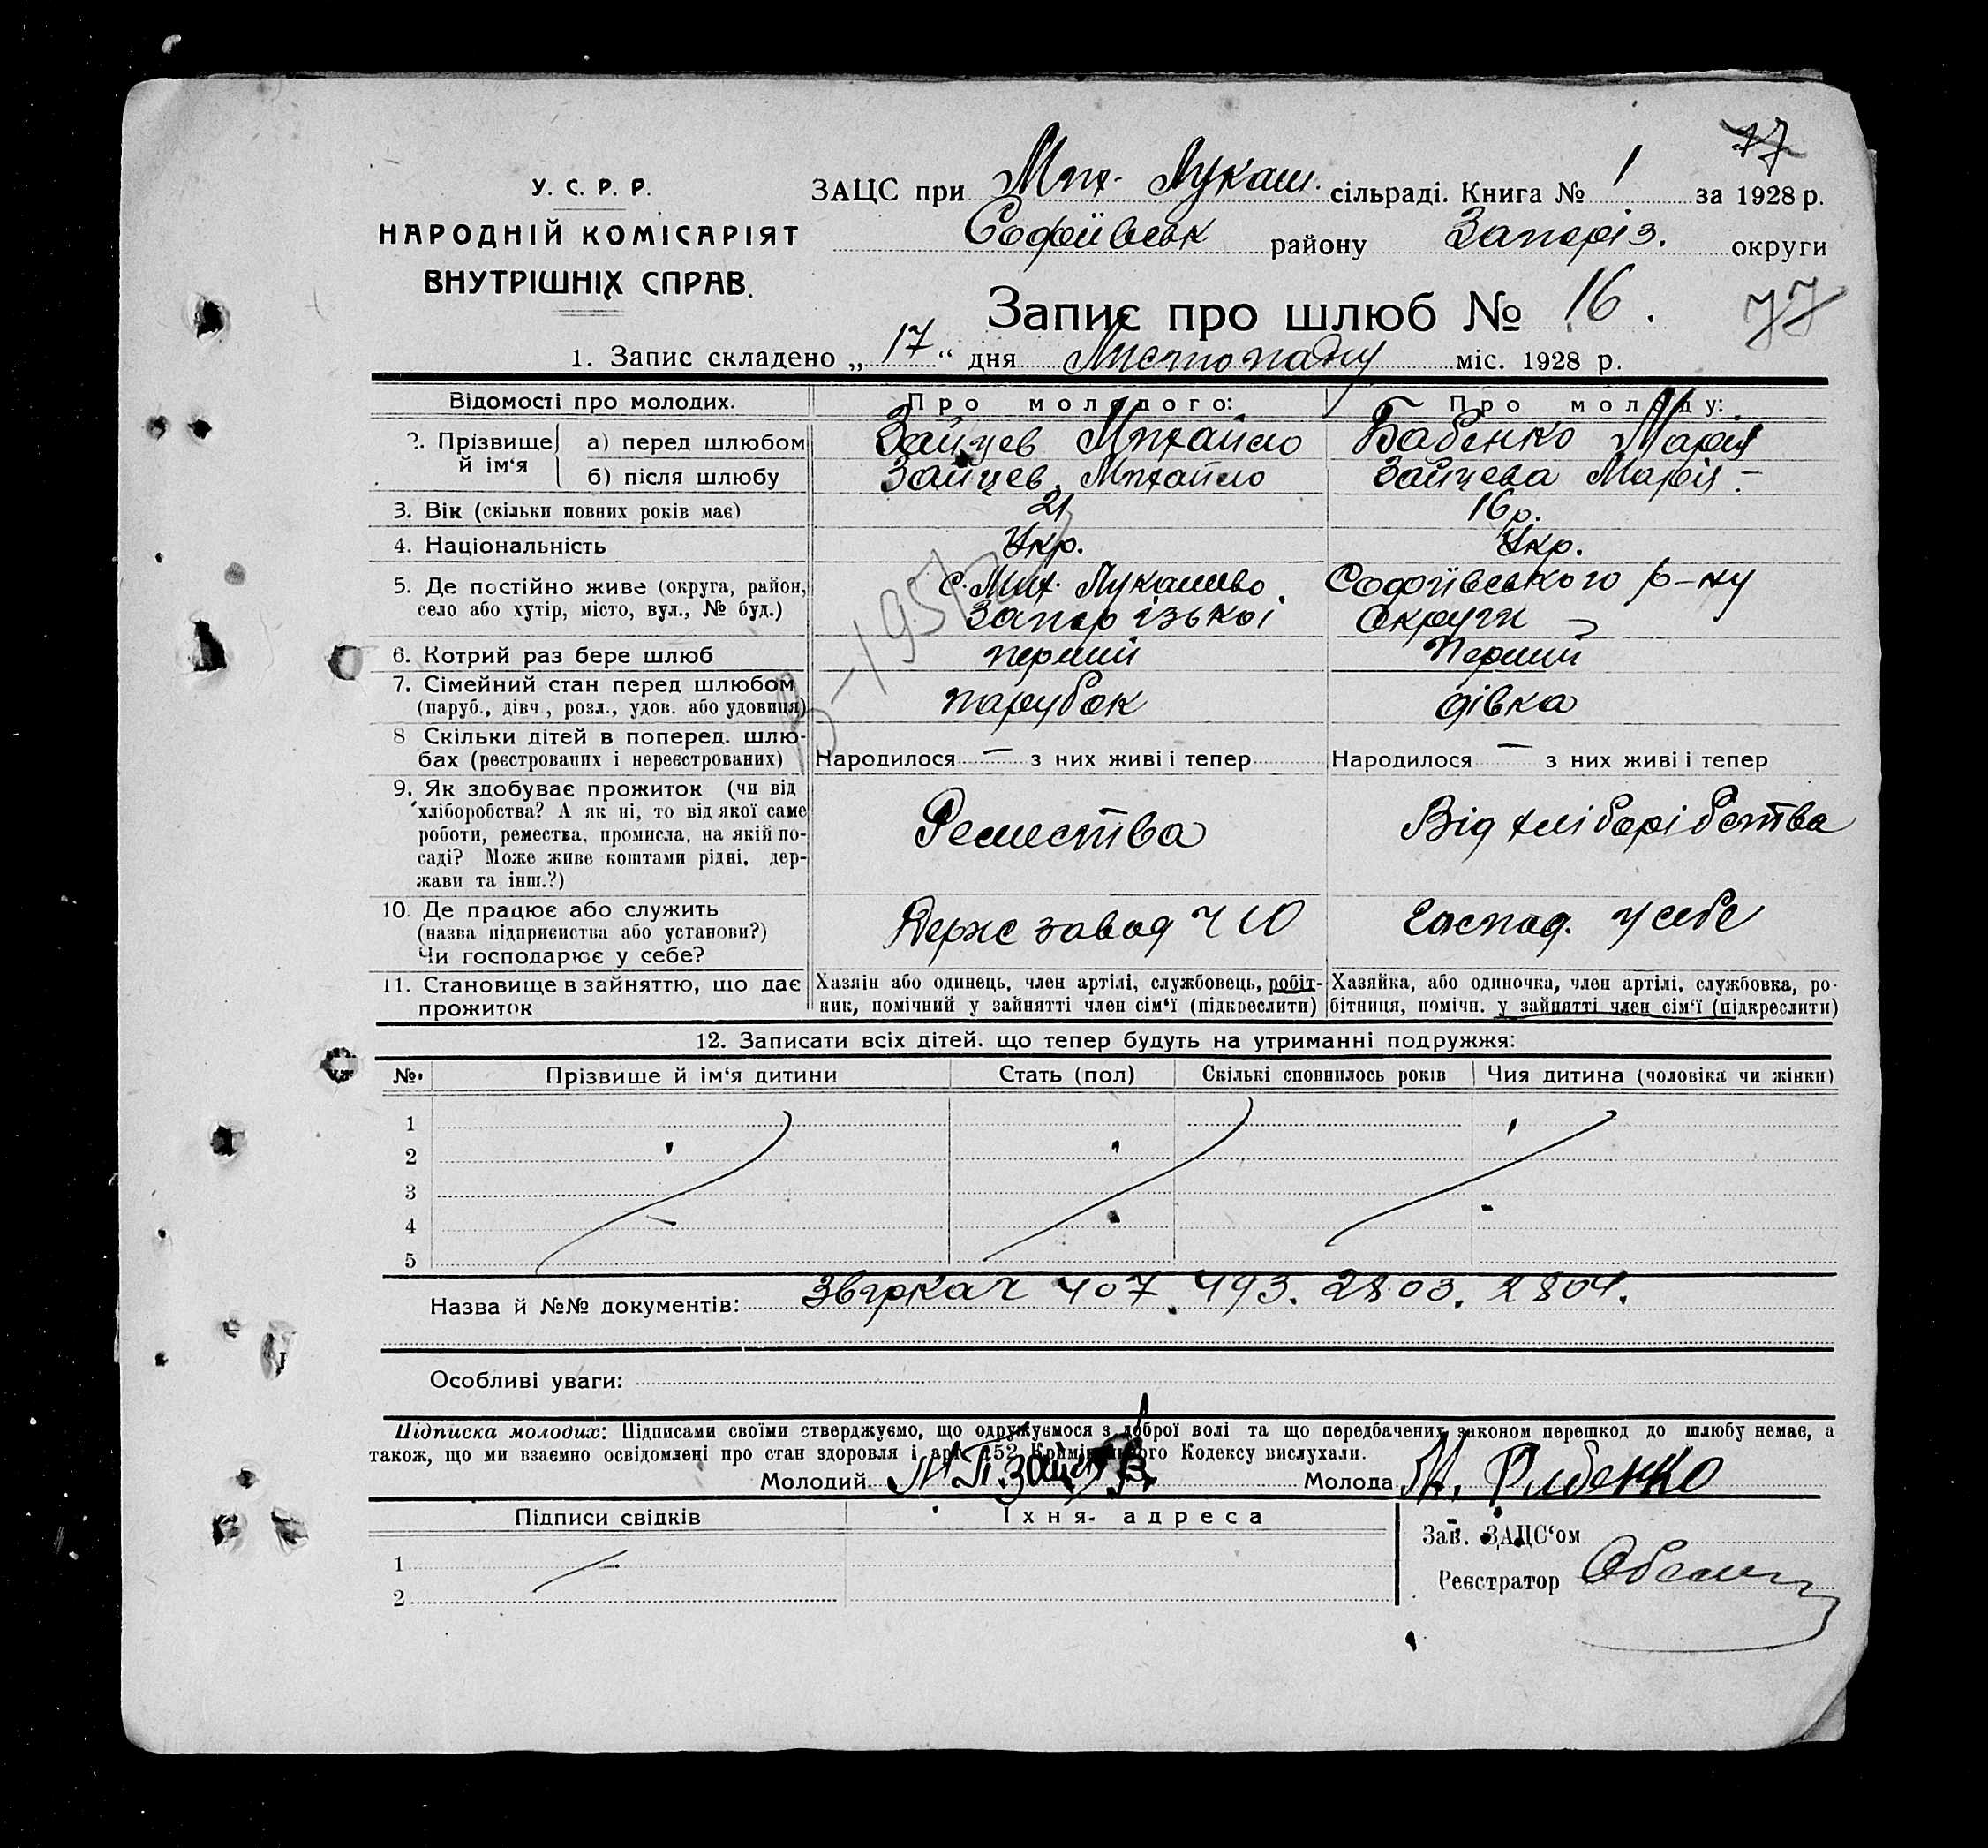 77
У. С. Р. Р.
НАРОДНІЙ КОМІСАРІЯТ
ВНУТРІШНІХ СПРАВ.
ЗАЦС при Мих. Лукаш. сільраді. Книга № 1 за 1928 р.
Софиївськ району Запоріз. округи
Запис про шлюб № 16. 77
1. Запис складено „17" дня Листопаду міс. 1928 р.
Відомості про молодих. Про молодого: Про молоду:
2. Прізвище й ім'я а) перед шлюбом Зайцев Михайло Бабенко Марія
б) після шлюбу Зайцев Михайло Зайцева Марія -
3. Вік (скільки повних років має) 21 16 р.
4. Національність Укр. Укр.
5. Де постійно живе (округа, район, село або хутір, місто, вул., № буд.) с. Мих. Лукашево Софіївського р-ну
Запорізької Округи
6. Котрий раз бере шлюб перший Перший
7. Сімейний стан перед шлюбом (паруб., дівч., розл., удов. або удовиця) парубок дівка
8 Скільки дітей в поперед. шлюбах (реєстрованих і нереєстрованих) Народилося — з них живі і тепер Народилося — з них живі і тепер
9. Як здобуває прожиток (чи від хліборобства? А як ні, то від якої саме роботи, ремества, промисла, на якій посаді? Може живе коштами рідні, держави та інш.?) Ремества Від хліборібства
10. Де працює або служить (назва підприємства або установи?) Чи господарює у себе? Держ завод Ч 10 Господ. у себе
11. Становище в зайняттю, що дає прожиток Хазяін або одинець, член артілі, службовець, робітник, помічний у зайнятті член сім'ї (підкреслити) Хазяйка, або одиночка, член артілі, службовка, робітниця, помічн. у зайнятті член сім'ї (підкреслити)
12. Записати всіх дітей. що тепер будуть на утриманні подружжя:
№ Прізвище й ім'я дитини Стать (пол) Скількі сповнилось років Чия дитина (чоловіка чи жінки)
1
2
3
4
5
Назва й №№ документів: Звірка Ч 407. 493. 2803. 2804.
Особливі уваги:
Підписка молодих: Підписами своїми стверджуємо, що одружуємося з доброї волі та що передбачених законом перешкод до шлюбу немає, а
також, що ми взаємно освідомлені про стан здоровля і арт. 152 Кримінального Кодексу вислухали.
Молодий Молода М. Бабенко
Підписи свідків Їхня адреса
Зав. ЗАЦС'ом
1
Реєстратор
2